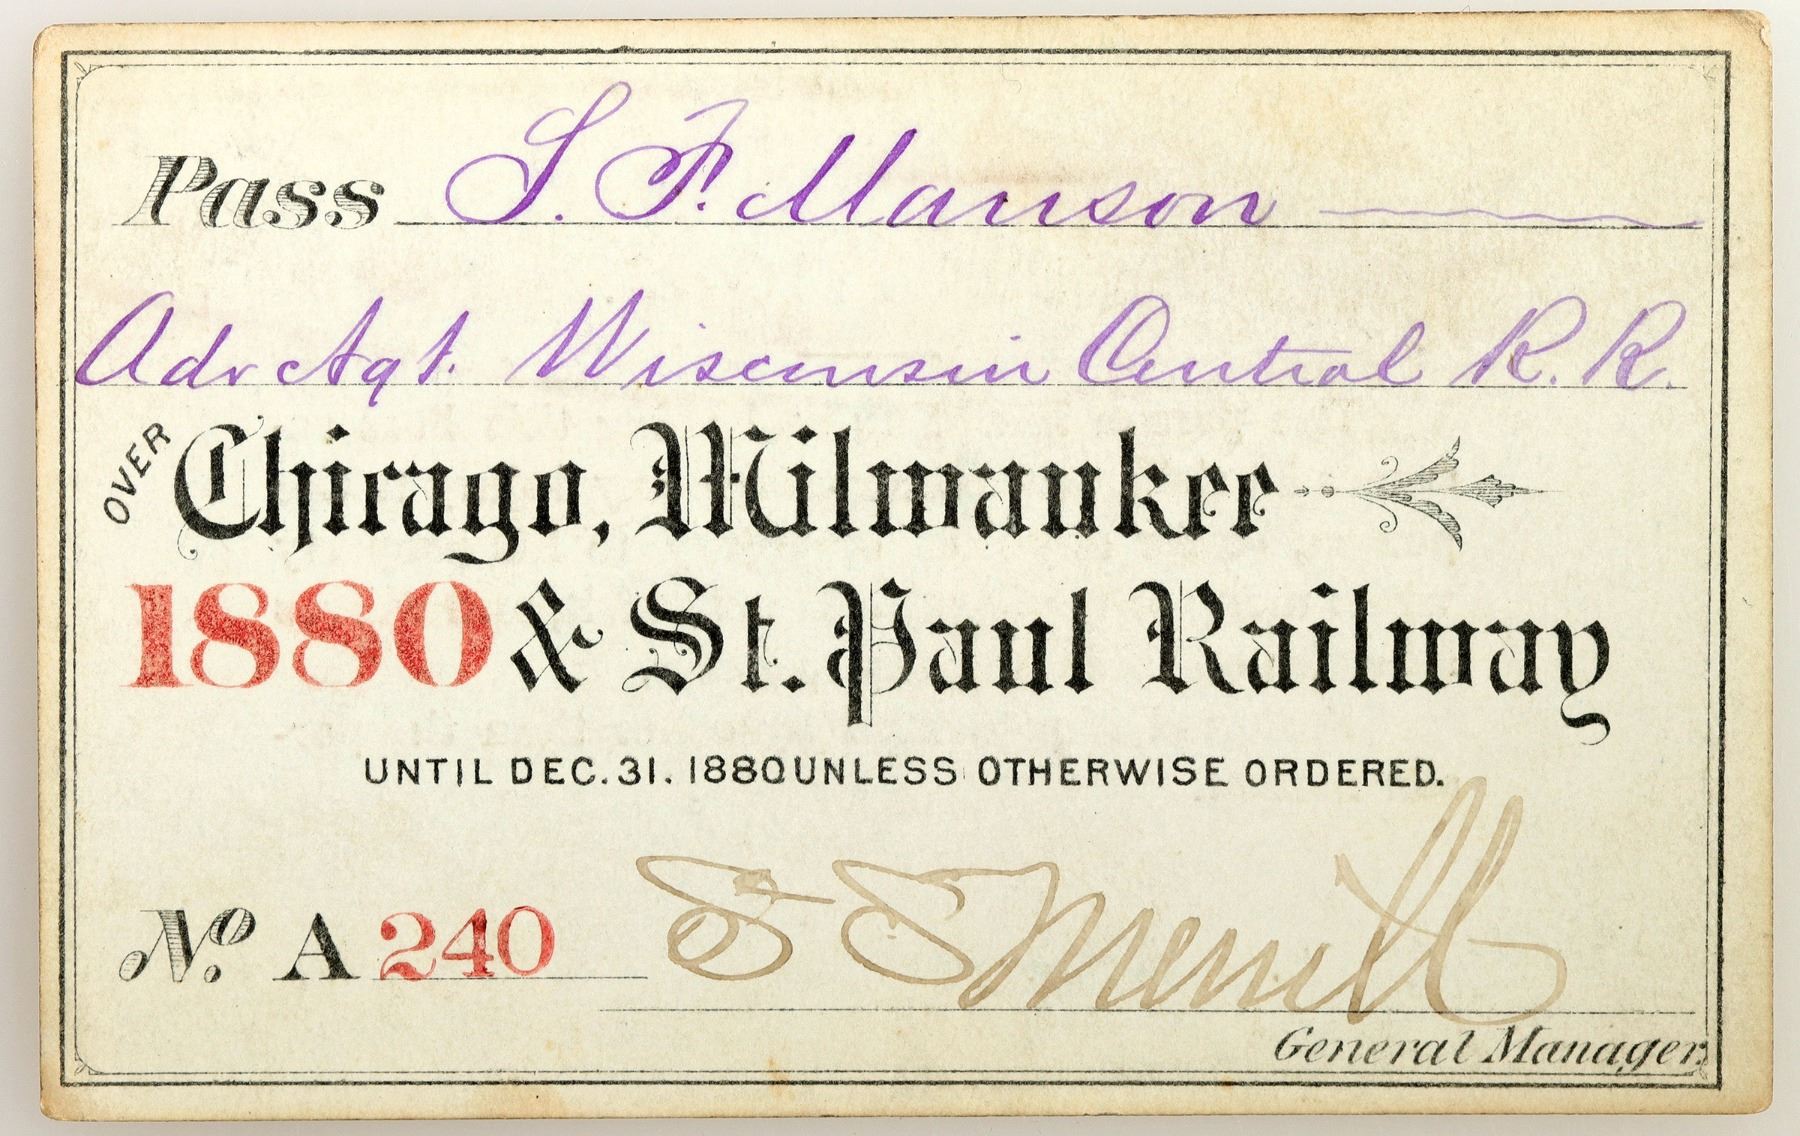 Pass S. F. Manson
Adv Agt. Wisconsin Central R. R.
OVER Chicago, Milwaukee
1880 & St. Paul Railway
UNTIL DEC. 31. 1880 UNLESS OTHERWISE ORDERED.
No. A 240 S S Merrill
General Manager.